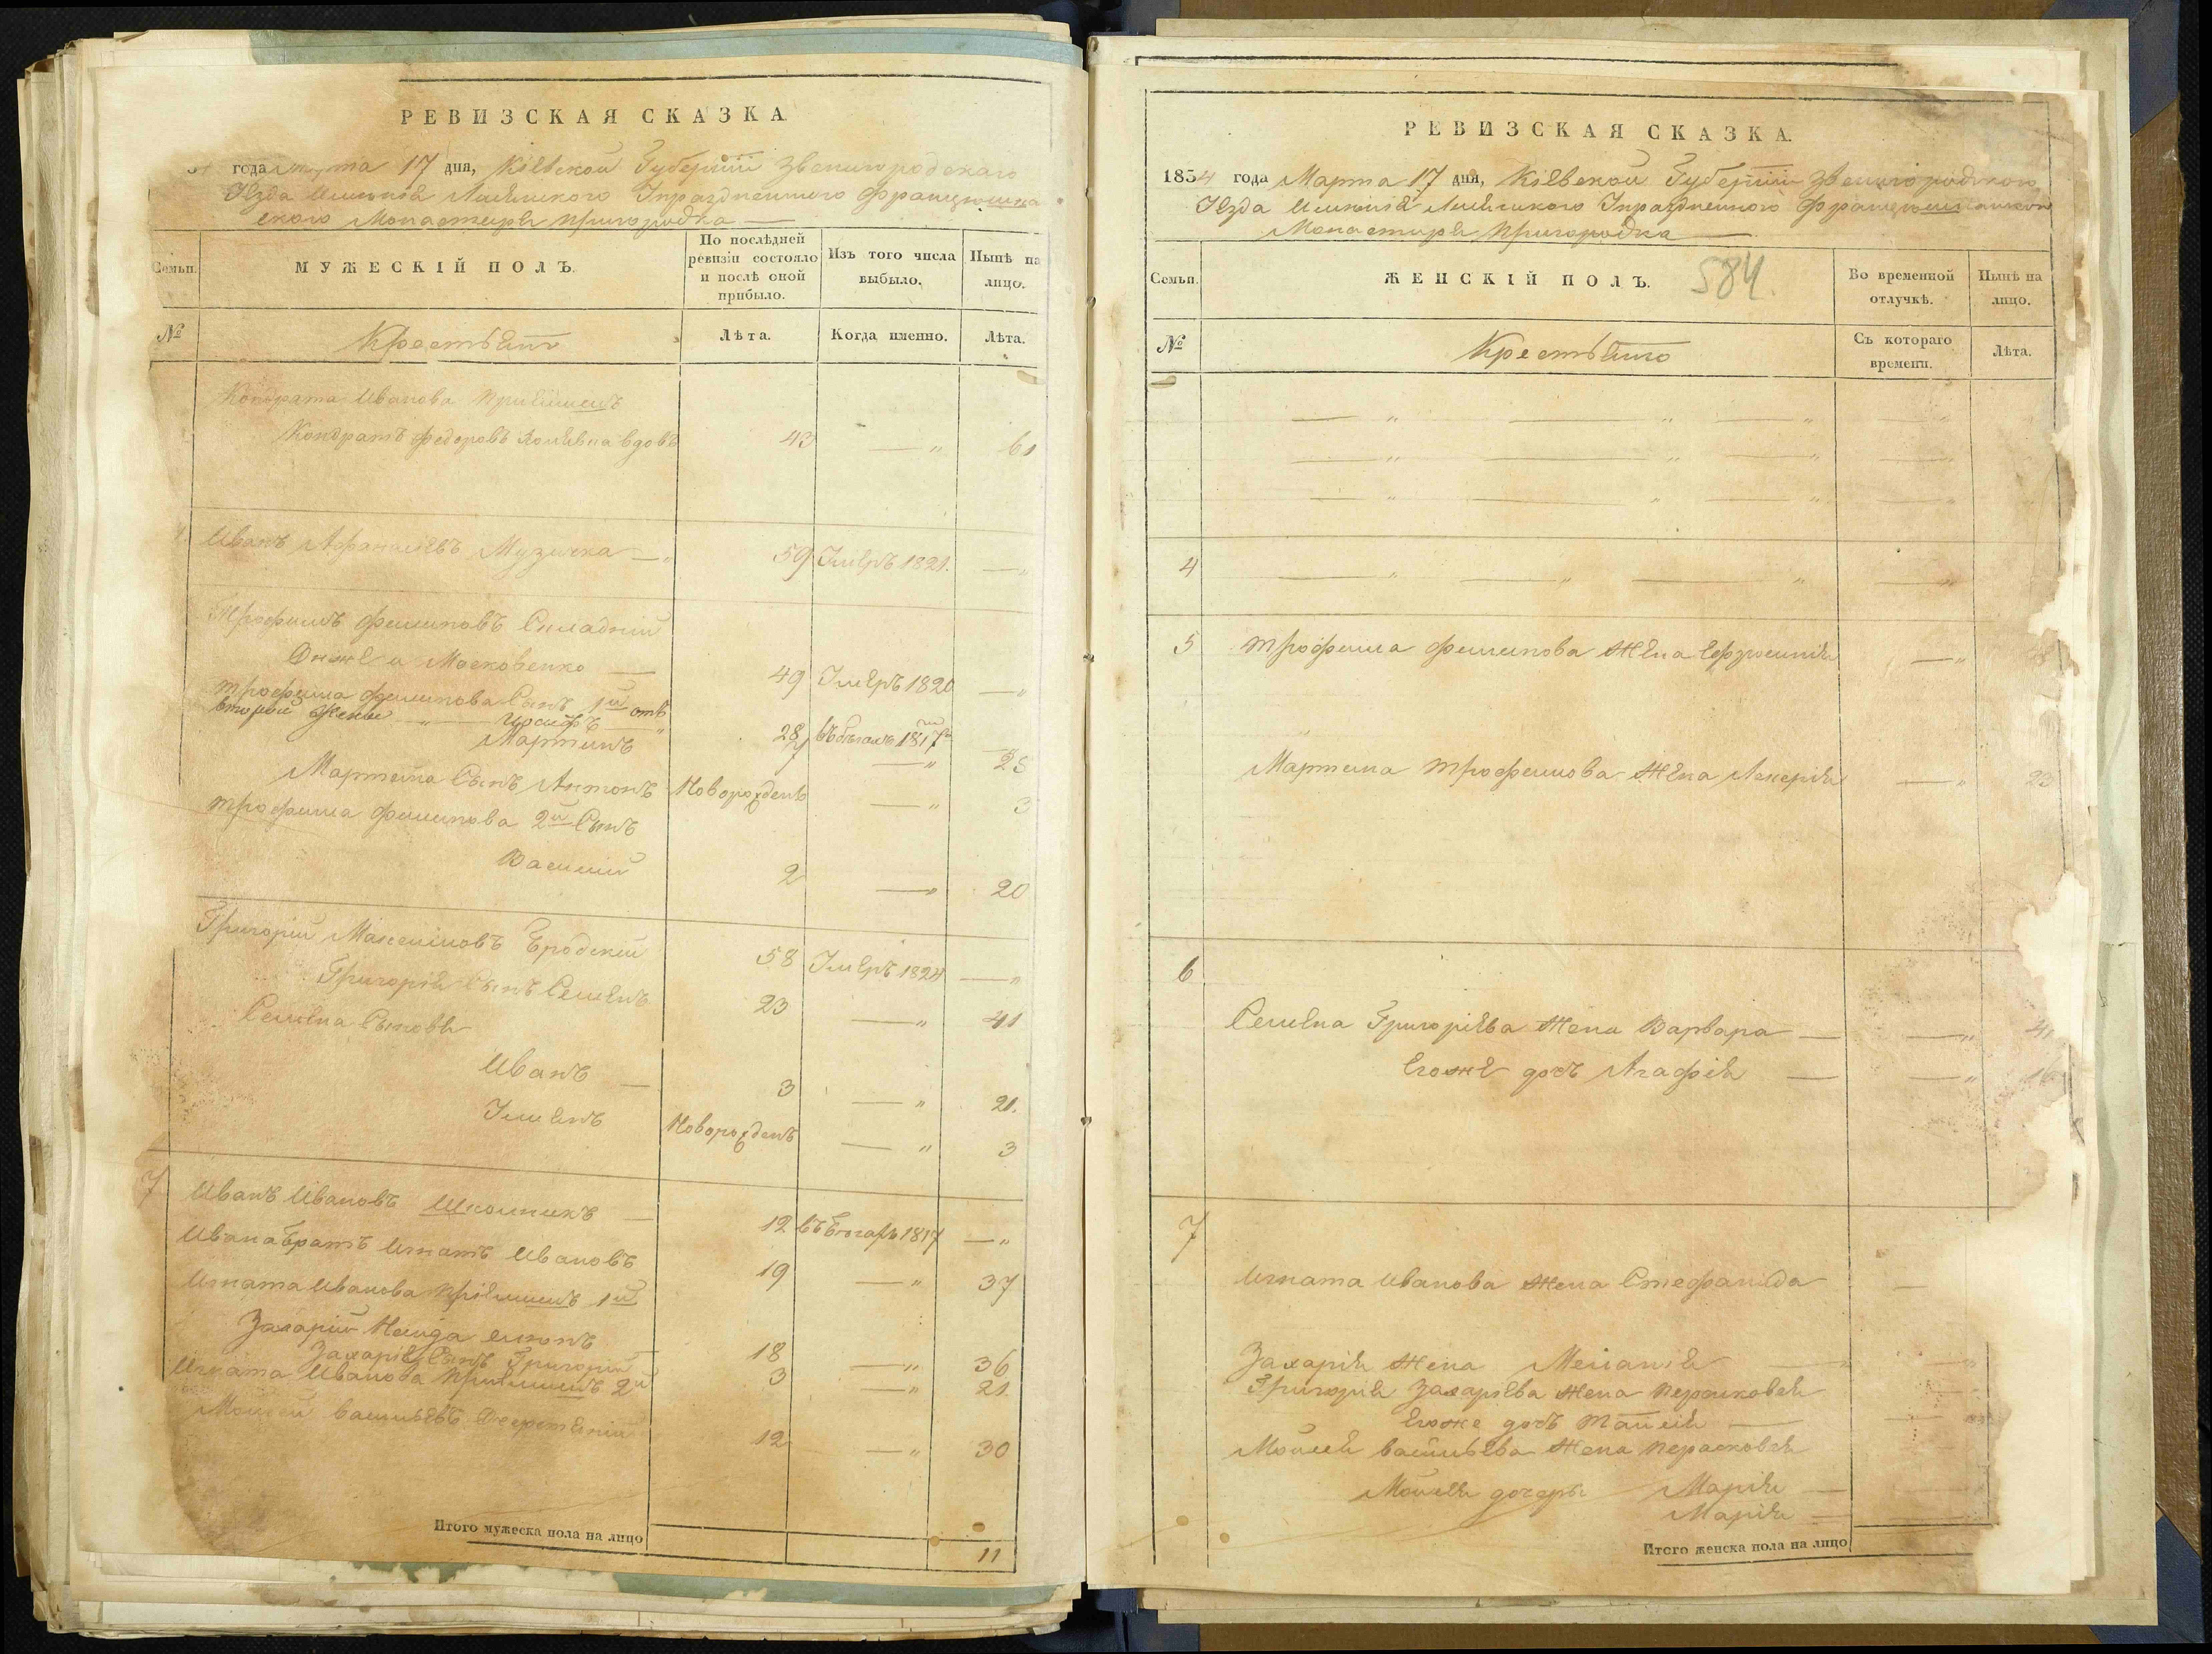 РЕВИЗСКАЯ СКАЗКА.
года Марта 17 дня, Кіевской Губерніи Звенигородскаго
Уезда Именія Лисянского Упраздненного Францишка
ского Монастиря Пригородка —
Семьи. МУЖЕСКІЙ ПОЛЪ. По послѣдней ревизіи состояло и послѣ оной прибыло. Изъ того числа выбыло. Нынѣ на лицо.
№ Крестьянъ Лѣта. Когда именно. Лѣта.
Кондрата Иванова Приймешъ
Кондратъ Федоровъ вдовъ 43 — " 61
Иванъ Афанасіевъ Музичка — " 59 Умеръ 1821. — "
Трофимъ Филиповъ Складній
Онже и Московенко — 49 Умеръ 1820 — "
Трофима Филипова Сынъ 1й отъ
второй Жены — " — 28 въ бегахъ 1817 "
Мартинъ 7 — " 25
Мартина Сынъ Антонъ Новорожденъ — " 3
Трофима Филипова 2й Сынъ
Василий 2 — " 20
Григорій Максимовъ Бродскій 58 Умеръ 1824 — "
Григорія Сынъ Семенъ 23 — " 41
Семена Сыновя
Иванъ — 3 — " 21.
Новорожденъ — " 3
7 Иванъ Ивановъ Школникъ — 12 въ бегахъ 1817 — "
Ивана братъ Игнатъ Ивановъ 19 — " 37
Игната Иванова Пріймешъ 1й
Захарій Найда — 18 — " 36
Захарія Сынъ Григорій 3 — " 21
Игната Иванова Приймешъ 2й
Мойсей Васильевъ 12 — " 30
Итого мужеска пола на лицо 11
РЕВИЗСКАЯ СКАЗКА.
1834 года Марта 17 дня, Кіевской Губерніи Звенигородского
Уезда Именія Лисянского Упраздненного
Монастиря Пригородка —
Семьи. ЖЕНСКІЙ ПОЛЪ. 584. Во временной отлучкѣ. Нынѣ на лицо.
№ Крестьяне Съ котораго времени. Лѣта.
4
5 Трофима Филипова Жена Ефросинія — "
Мартина Трофимова Жена Лукерія — " 23
6
Семена Григоріева Жена Варвара — — " 41
Егоже дочъ Агафія — — " 16
7
Игната Иванова Жена Стефанида —
Захарія Жена Меланія — "
Григорія Захаріева Жена Персковея
Егоже дочъ Таисія —
Мойсея Васильева Жена Персковея
Мойсея дочеры Марія —
Марія —
Итого женска пола на лицо